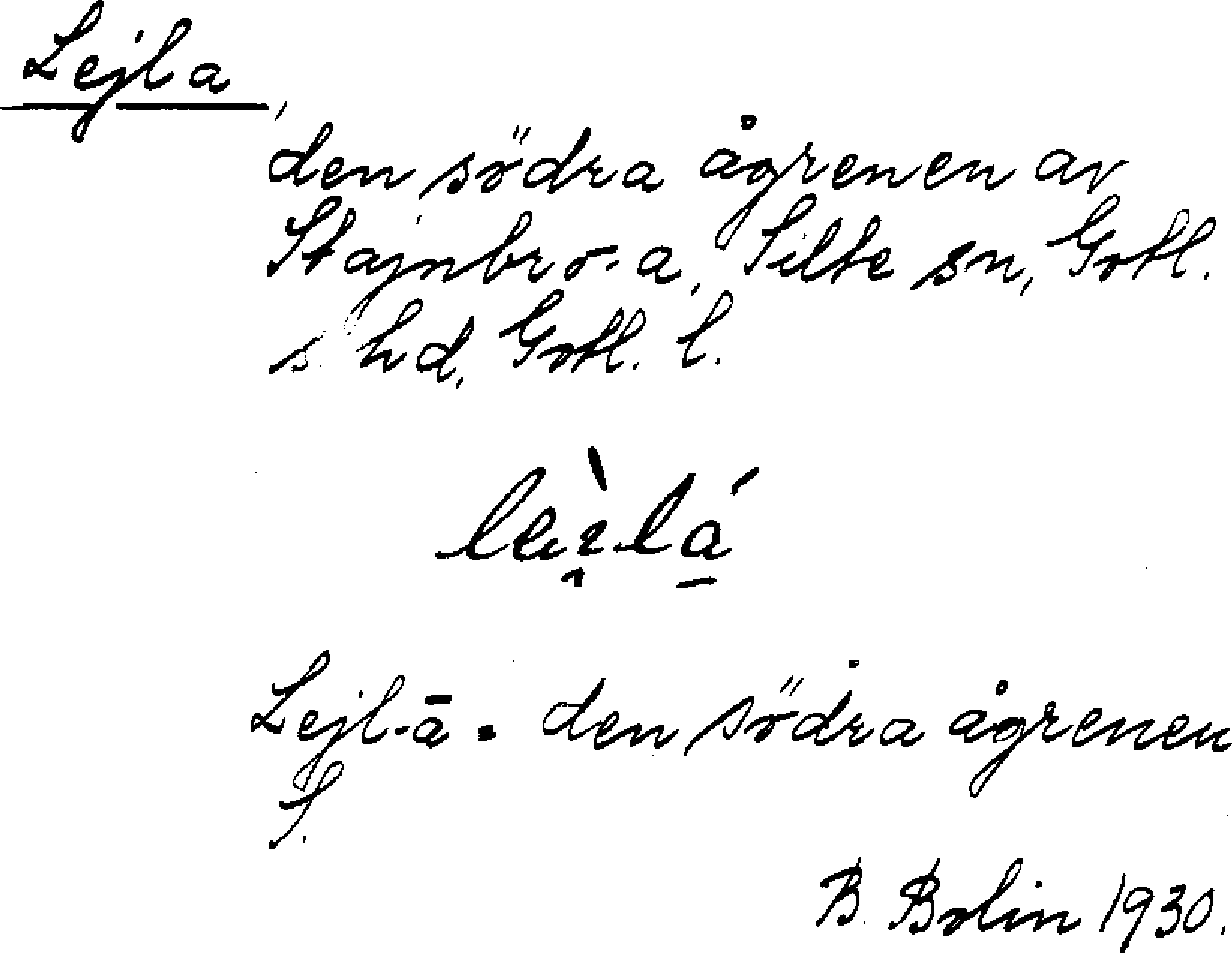 Lejla,
den södra ågrenen av
Stajnbro-a, Silte sn, Gotl.
s. hd, Gotl. l.
Lejl-ā = den södra ågrenen
S.
B. Bolin 1930.